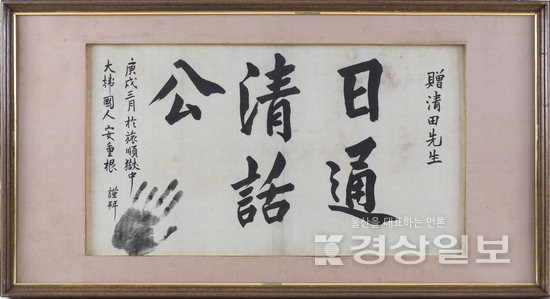 贈清田先生
日通
清話
公
庚戌三月 於旅順獄中
大韓國人 安重根 謹拜
울산을 대표하는 언론
경상일보